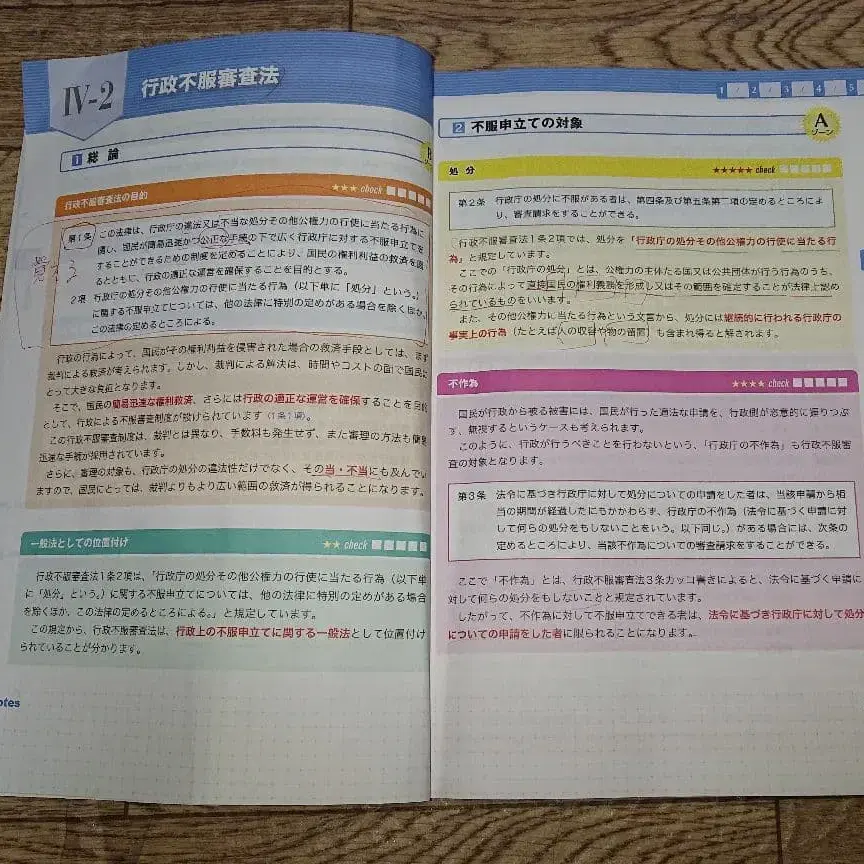 IV-2
行政不服審査法
1 総論
行政不服審査法の目的
★★★ check
第1条 この法律は、行政庁の違法又は不当な処分その他公権力の行使に当たる行為に
関し、国民が簡易迅速かつ公正な手続の下で広く行政庁に対する不服申立てを
することができるための制度を定めることにより、国民の権利利益の救済を図
るとともに、行政の適正な運営を確保することを目的とする。
2項 行政庁の処分その他公権力の行使に当たる行為(以下単に「処分」という。)
に関する不服申立てについては、他の法律に特別の定めがある場合を除くほか、
この法律の定めるところによる。
覚える
行政の行為によって、国民がその権利利益を侵害された場合の救済手段としては、まず
裁判による救済が考えられます。しかし、裁判による解決は、時間やコストの面で国民に
とって大きな負担となります。
そこで、国民の簡易迅速な権利救済、さらには行政の適正な運営を確保することを目的
として、行政による不服審査制度が設けられています(1条1項)。
この行政不服審査制度は、裁判とは異なり、手数料も発生せず、また審理の方法も簡易
迅速な手続が採用されています。
さらに、審理の対象も、行政庁の処分の違法性だけでなく、その当・不当にも及んでい
ますので、国民にとっては、裁判よりもより広い範囲の救済が得られることになります。
一般法としての位置付け
★★ check
行政不服審査法1条2項は、「行政庁の処分その他公権力の行使に当たる行為(以下単
に「処分」という。)に関する不服申立てについては、他の法律に特別の定めがある場合
を除くほか、この法律の定めるところによる。」と規定しています。
この規定から、行政不服審査法は、行政上の不服申立てに関する一般法として位置付け
られていることが分かります。
otes
1 2 3 4 5
2 不服申立ての対象
A
ゾーン
処分
★★★★★ check
第2条 行政庁の処分に不服がある者は、第四条及び第五条第二項の定めるところによ
り、審査請求をすることができる。
行政不服審査法1条2項では、処分を「行政庁の処分その他公権力の行使に当たる行
為」と規定しています。
ここでの「行政庁の処分」とは、公権力の主体たる国又は公共団体が行う行為のうち、
その行為によって直接国民の権利義務を形成し又はその範囲を確定することが法律上認め
られているものをいいます。
また、その他公権力に当たる行為という文言から、処分には継続的に行われる行政庁の
事実上の行為(たとえば人の収容や物の留置)も含まれ得ると解されます。
不作為
★★★★ check
国民が行政から被る被害には、国民が行った適法な申請を、行政側が恣意的に握りつぶ
す、無視するというケースも考えられます。
このように、行政が行うべきことを行わないという、「行政庁の不作為」も行政不服審
査の対象となります。
第3条 法令に基づき行政庁に対して処分についての申請をした者は、当該申請から相
当の期間が経過したにもかかわらず、行政庁の不作為(法令に基づく申請に対
して何らの処分をもしないことをいう。以下同じ。)がある場合には、次条の
定めるところにより、当該不作為についての審査請求をすることができる。
ここで「不作為」とは、行政不服審査法3条カッコ書きによると、法令に基づく申請に
対して何らの処分をもしないことと規定されています。
したがって、不作為に対して不服申立てできる者は、法令に基づき行政庁に対して処分
についての申請をした者に限られることになります。